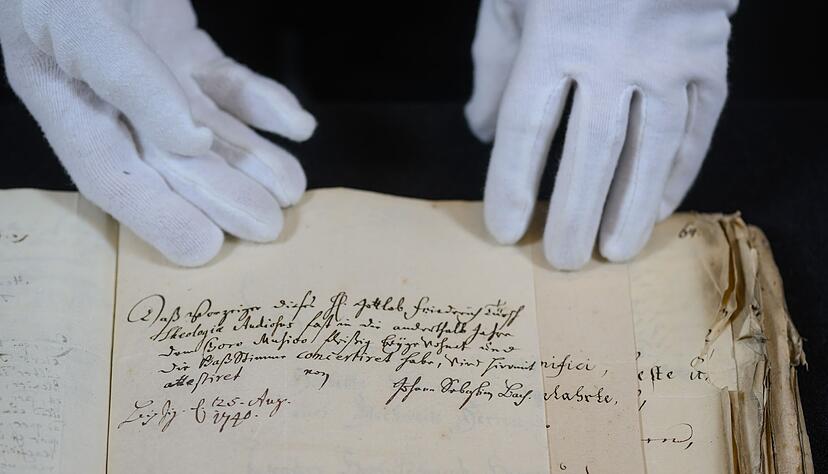 Daß Vorzeiger dieses H. Gottlob Friedrich Türck
Theologiæ Studiosus fast in die anderthalb Jahre
dem Choro Musico fleißig beygewohnet und
die Baß Stimme concertiret habe, wird hiermit
attestiret von
Johann Sebastian Bach.
Leipzig. d 25. Aug.
1740.
nifici,
este it
64